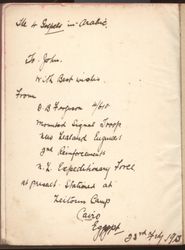 The 4 Gospels in Arabic
To John.
With Best wishes.
From
Ferguson 4/615
Mounted Signal Troops
New Zealand Engineers
2nd Reinforcements
N.Z. Expeditionary Force
At present stationed at
Zeitoun Camp
Cairo
Egypt
23rd July